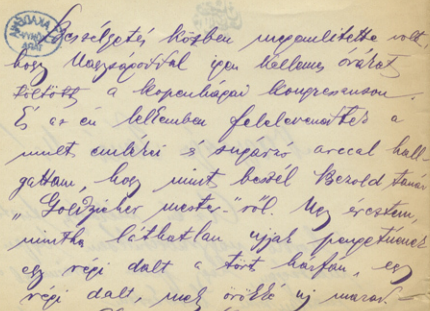 Beszélgetés közben megemlitette volt,
hogy Nagyságoddal igen kellemes órákat
töltött a kopenhágai kongressuson.
És az én lelkemben felelevenedtek a
mult emlékei s sugárzó arccal hall-
gattam, hogy mint beszél Bezold tanár
„Goldziher mester"-ről. Ugy éreztem,
mintha láthatlan ujjak pengetnének
egy régi dalt a tört hárfán, egy
régi dalt, mely örökké uj marad. –